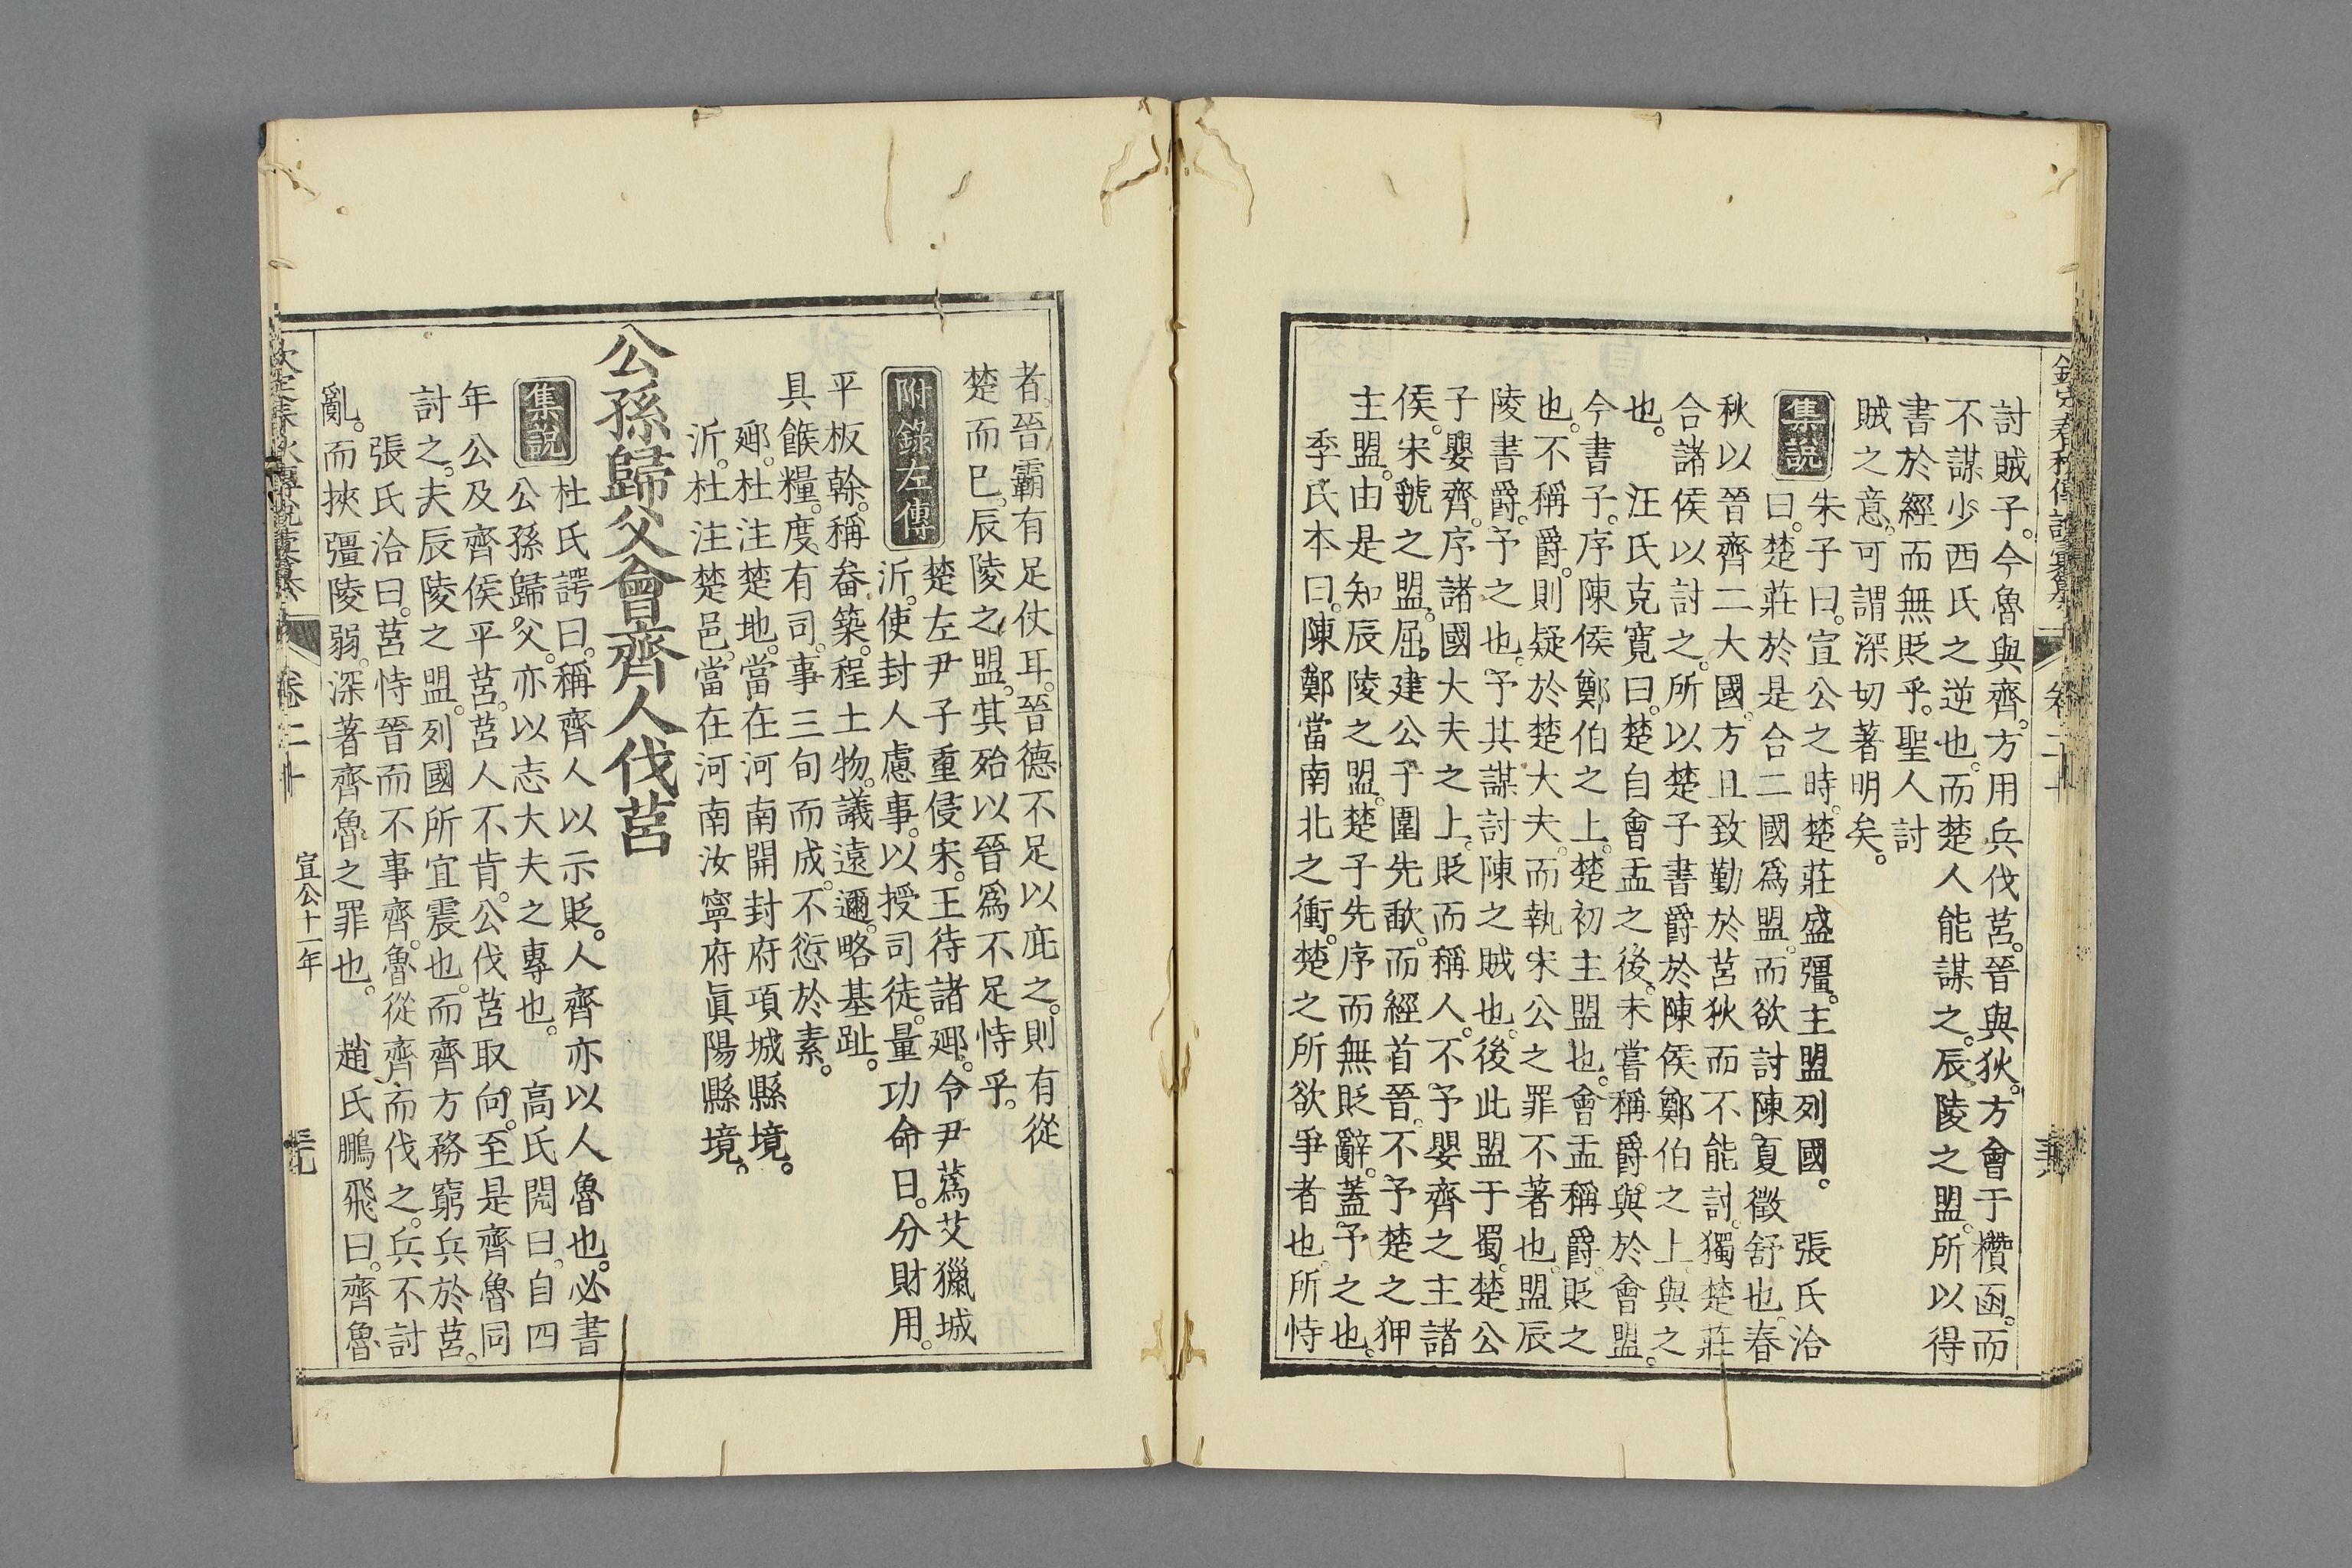 討賊子。今魯與齊。方用兵伐莒。晉與狄。方會于欑函。而
不謀少西氏之逆也。而楚人能謀之。辰陵之盟。所以得
書於經而無貶乎。聖人討
賊之意。可謂深切著明矣。
集說
朱子曰。宣公之時。楚莊盛彊。主盟列國。 張氏洽
曰。楚莊於是合二國爲盟。而欲討陳夏徵舒也。春
秋以晉齊二大國。方且致勤於莒狄而不能討。獨楚莊
合諸侯以討之。所以楚子書爵於陳侯鄭伯之上。與之
也。 汪氏克寬曰。楚自會盂之後。未嘗稱爵。與於會盟。
今書子。序陳侯鄭伯之上。楚初主盟也。會盂稱爵。貶之
也。不稱爵。則疑於楚大夫。而執宋公之罪不著也。盟辰
陵書爵。予之也。予其謀討陳之賊也。後此盟于蜀。楚公
子嬰齊。序諸國大夫之上。貶而稱人。不予嬰齊之主諸
侯。宋虢之盟。屈建公子圍先歃。而經首晉。不予楚之狎
主盟。由是知辰陵之盟。楚子先序而無貶辭。蓋予之也。
季氏本曰。陳鄭當南北之衝。楚之所欲爭者也。所恃
卷二十
者。晉霸有足仗耳。晉德不足以庇之。則有從
楚而已。辰陵之盟。其殆以晉爲不足恃乎。
附錄左傳
楚左尹子重侵宋。王待諸郔。令尹蒍艾獵城
沂。使封人慮事。以授司徒。量功命日。分財用。
平板榦。稱畚築。程土物。議遠邇。略基趾。
具餱糧。度有司。事三旬而成。不愆於素。
郔。杜注楚地。當在河南開封府項城縣境。
沂。杜注楚邑。當在河南汝寧府眞陽縣境。
公孫歸父會齊人伐莒
集說
杜氏諤曰。稱齊人以示貶。人齊亦以人魯也。必書
公孫歸父。亦以志大夫之專也。 高氏閌曰。自四
年公及齊侯平莒。莒人不肯。公伐莒取向。至是齊魯同
討之。夫辰陵之盟。列國所宜震也。而齊方務窮兵於莒。
張氏洽曰。莒恃晉而不事齊。魯從齊而伐之。兵不討
亂。而挾彊陵弱。深著齊魯之罪也。 趙氏鵬飛曰。齊魯
卷二十
宣公十一年